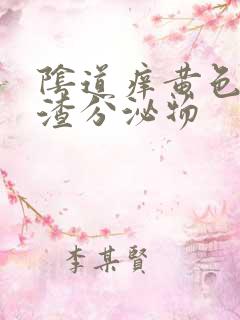 陰道痒黄色
渣分泌物
李某賢